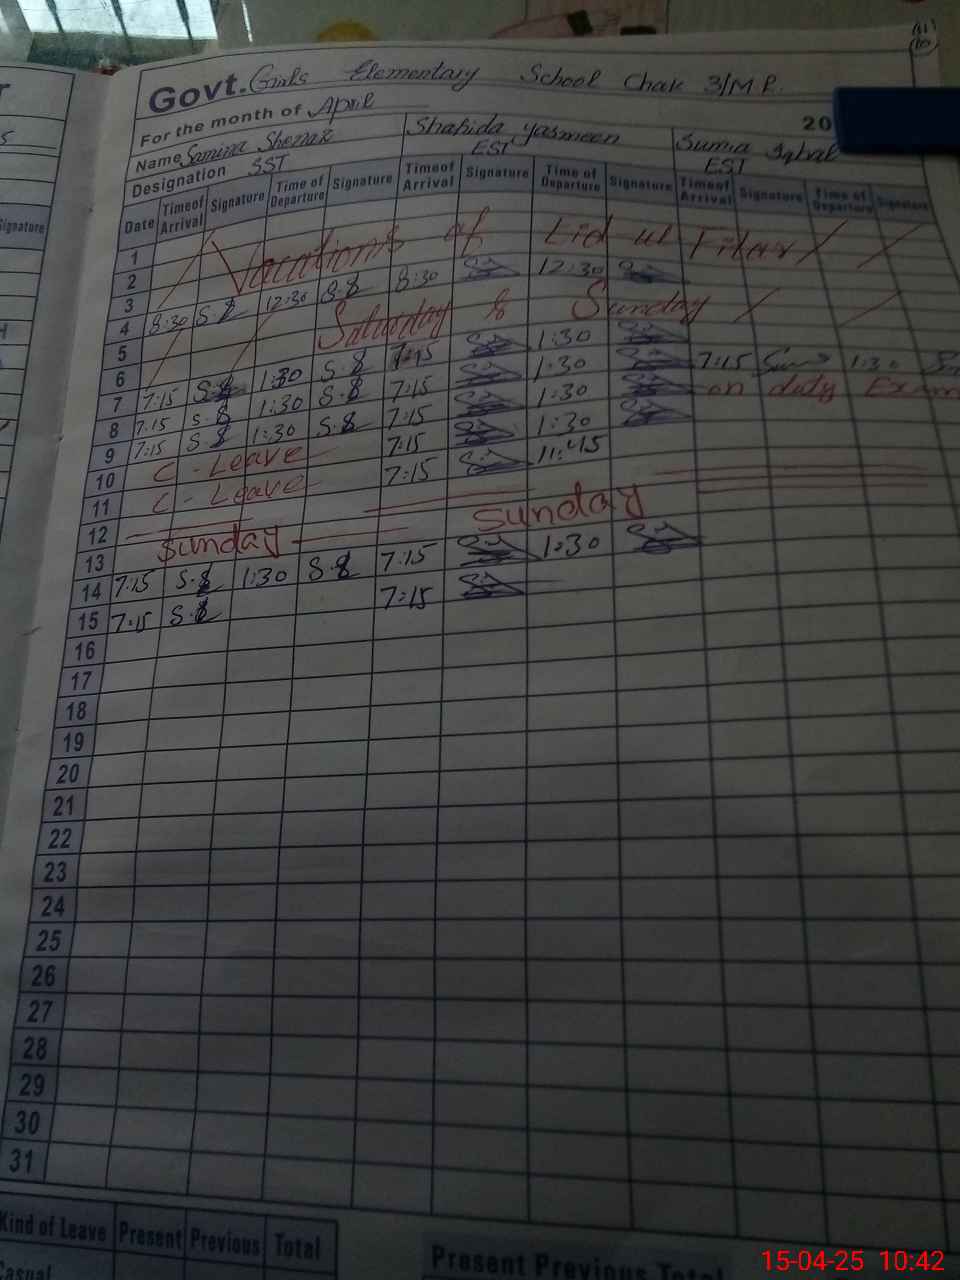 (11)
(10)
Govt. Girls Elementary School Chak 3/M R.
For the month of April 20
Name Samina Shenaz Shahida Yasmeen Sumia Iqbal
Designation SST EST EST
Date Time of Arrival Signature Time of Departure Signature Time of Arrival Signature Time of Departure Signature Time of Arrival Signature Time of Departure Signature
1
2 Vacations of Eid ul Fitar
3
4 8:30 S.S 12:30 S.S 8:30 12:30
5 Saturday & Sunday
6
7 7:15 S.S 1:30 S.S 7:15 1:30
8 7:15 S.S 1:30 S.S 7:15 1:30 7:15 1:30
9 7:15 S.S 1:30 S.S 7:15 1:30 on duty Exam
10 C-Leave 7:15 1:30
11 C-Leave 7:15 11:45
12
13 Sunday Sunday
14 7:15 S.S 1:30 S.S 7:15 1:30
15 7:15 S.S 7:15
16
17
18
19
20
21
22
23
24
25
26
27
28
29
30
31
Kind of Leave Present Previous Total
Casual
Present Previous Total
15-04-25 10:42